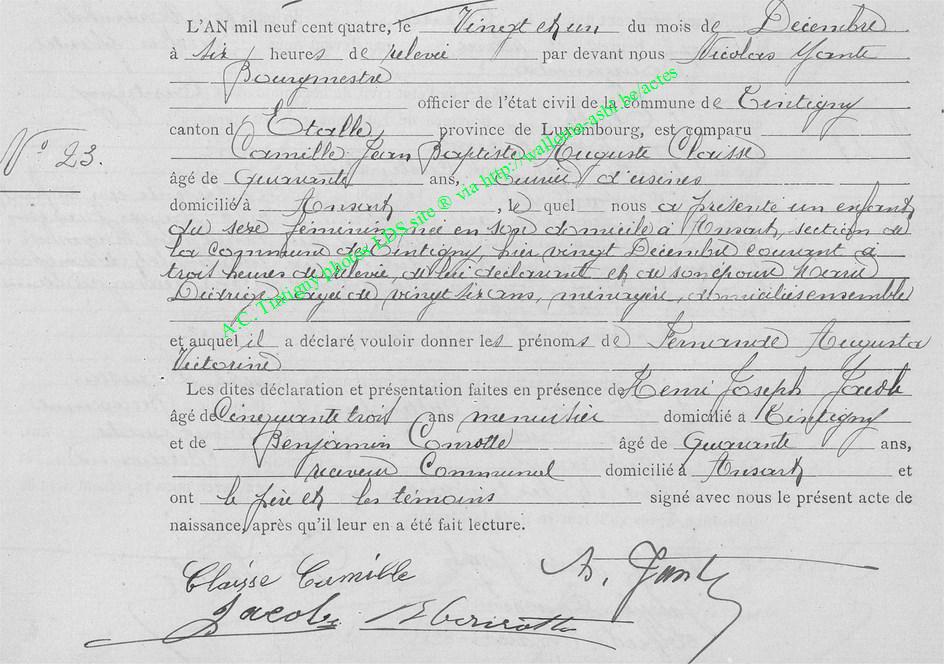 L'AN mil neuf cent quatre, le Vingt et un du mois de Décembre
à six heures de relevée par devant nous Nicolas Yante
Bourgmestre
officier de l'état civil de la commune de Tintigny
canton d'Etalle province de Luxembourg, est comparu
N° 23.
Camille Jean Baptiste Auguste Claisse
âgé de Quarante ans, Ouvrier d'usines
domicilié à Ansart, lequel nous a présenté un enfant
du sexe féminin, née en son domicile à Ansart, section de
la commune de Tintigny, hier vingt Décembre courant à
trois heures de relevée, de lui déclarant et de son épouse Marie
âgée de vingt six ans, ménagère, domiciliés ensemble
et auquel il a déclaré vouloir donner les prénoms de Fernande Augusta
Victorine
Les dites déclaration et présentation faites en présence de Henri Joseph Jacob
âgé de Cinquante trois ans menuisier domicilié à Tintigny
et de Benjamin Conrotte âgé de Quarante ans,
receveur Communal domicilié à Ansart et
ont le père et les témoins signé avec nous le présent acte de
naissance, après qu'il leur en a été fait lecture.
Claisse Camille
N. Yante
Jacob B Conrotte
A.C. Tintigny photos LDS site ® via http://wallonia-asbl.be/actes